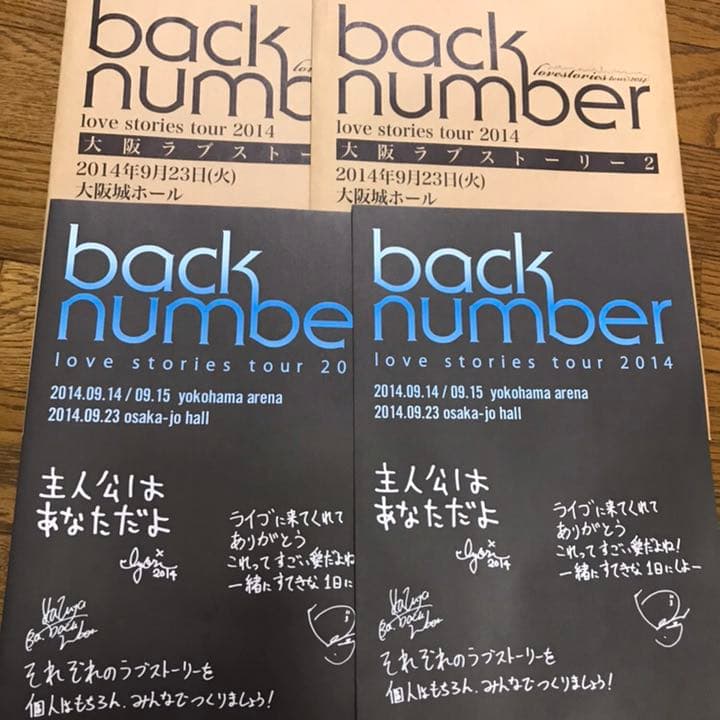 back
number
love stories tour 2014
大阪ラブスト
2014年9月23日(火)
大阪城ホール
back
number
lovestories tour 2014
love stories tour 2014
大阪ラブストーリー2
2014年9月23日(火)
大阪城ホール
back
numbe
love stories tour 20
2014.09.14 / 09.15 yokohama arena
2014.09.23 osaka-jo hall
主人公は
あなただよ
2014
ライブに来てくれて
ありがとう
これってすごい愛だよね
一緒にすてきな1日に
それぞれのラブストーリーを
個人はもちろん、みんなでつくりましょう!
back
number
love stories tour 2014
2014.09.14 / 09.15 yokohama arena
2014.09.23 osaka-jo hall
主人公は
あなただよ
2014
ライブに来てくれて
ありがとう
これってすごい愛だよね!
一緒にすてきな1日にしよー
それぞれのラブストーリーを
個人はもちろん、みんなでつくりましょう!